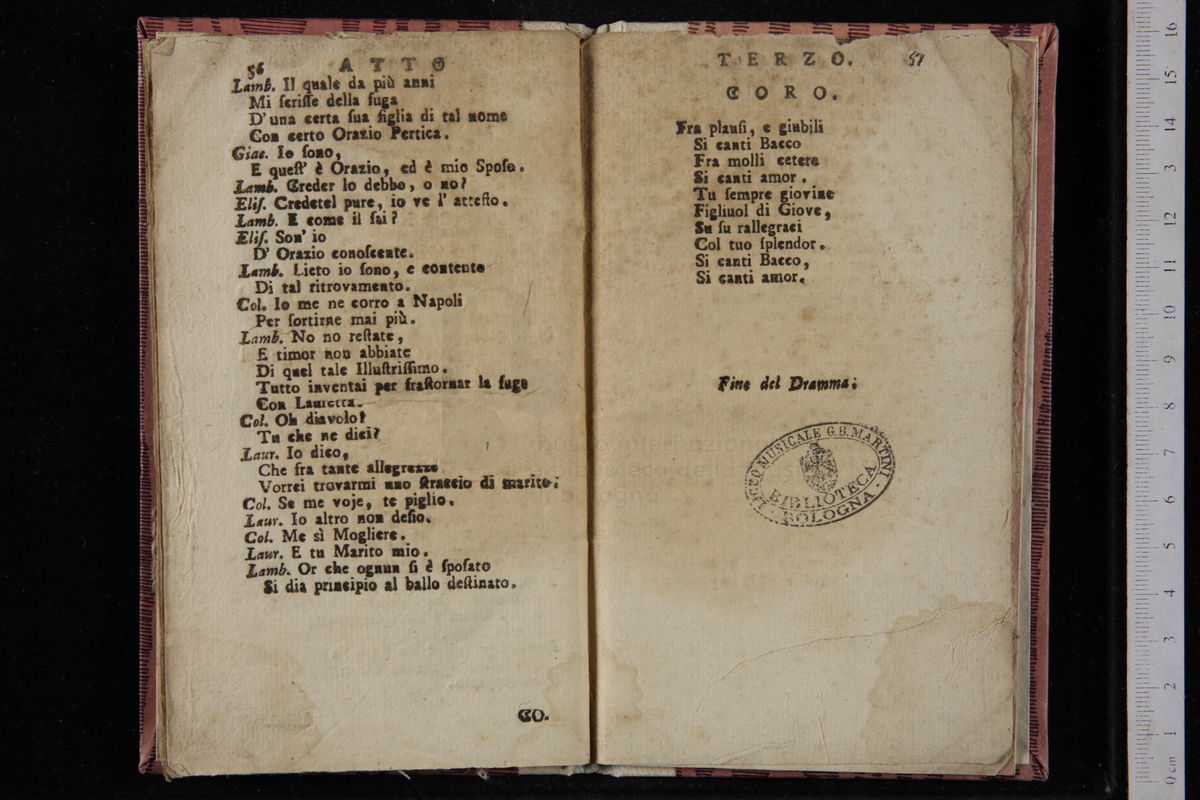 56 ATTO
Lamb. Il quale da più anni
Mi ſcriſſe della fuga
D'una certa ſua figlia di tal nome
Con certo Orazio Pertica.
Giac. Io ſono,
E queſt' è Orazio, ed è mio Spoſo.
Lamb. Creder lo debbo, o no?
Eliſ. Credetel pure, io ve l' atteſto.
Lamb. E come il ſai?
Eliſ. Son' io
D' Orazio conoſcente.
Lamb. Lieto io ſono, e contento
Di tal ritrovamento.
Col. Io me ne corro a Napoli
Per ſortirne mai più.
Lamb. No no reſtate,
E timor non abbiate
Di quel tale Illuſtriſſimo.
Tutto inventai per fraſtornar la fuga
Con Lauretta.
Col. Oh diavolo!
Tu che ne dici?
Laur. Io dico,
Che fra tante allegrezze
Vorrei trovarmi uno ſtraccio di marito.
Col. Se me voje, te piglio.
Laur. Io altro non deſio.
Col. Me sì Mogliere.
Laur. E tu Marito mio.
Lamb. Or che ognun ſi è ſpoſato
Si dia principio al ballo deſtinato.
CO.
TERZO. 57
CORO.
Fra plauſi, e giubili
Si canti Bacco
Fra molli cetere
Si canti amor.
Tu ſempre giovine
Figliuol di Giove,
Su ſu rallegraci
Col tuo ſplendor.
Si canti Bacco,
Si canti amor.
Fine del Dramma.
LICEO MUSICALE G.B. MARTINI
BIBLIOTECA
BOLOGNA
16
15
14
13
12
11
10
9
8
7
6
5
4
3
2
1
0 cm